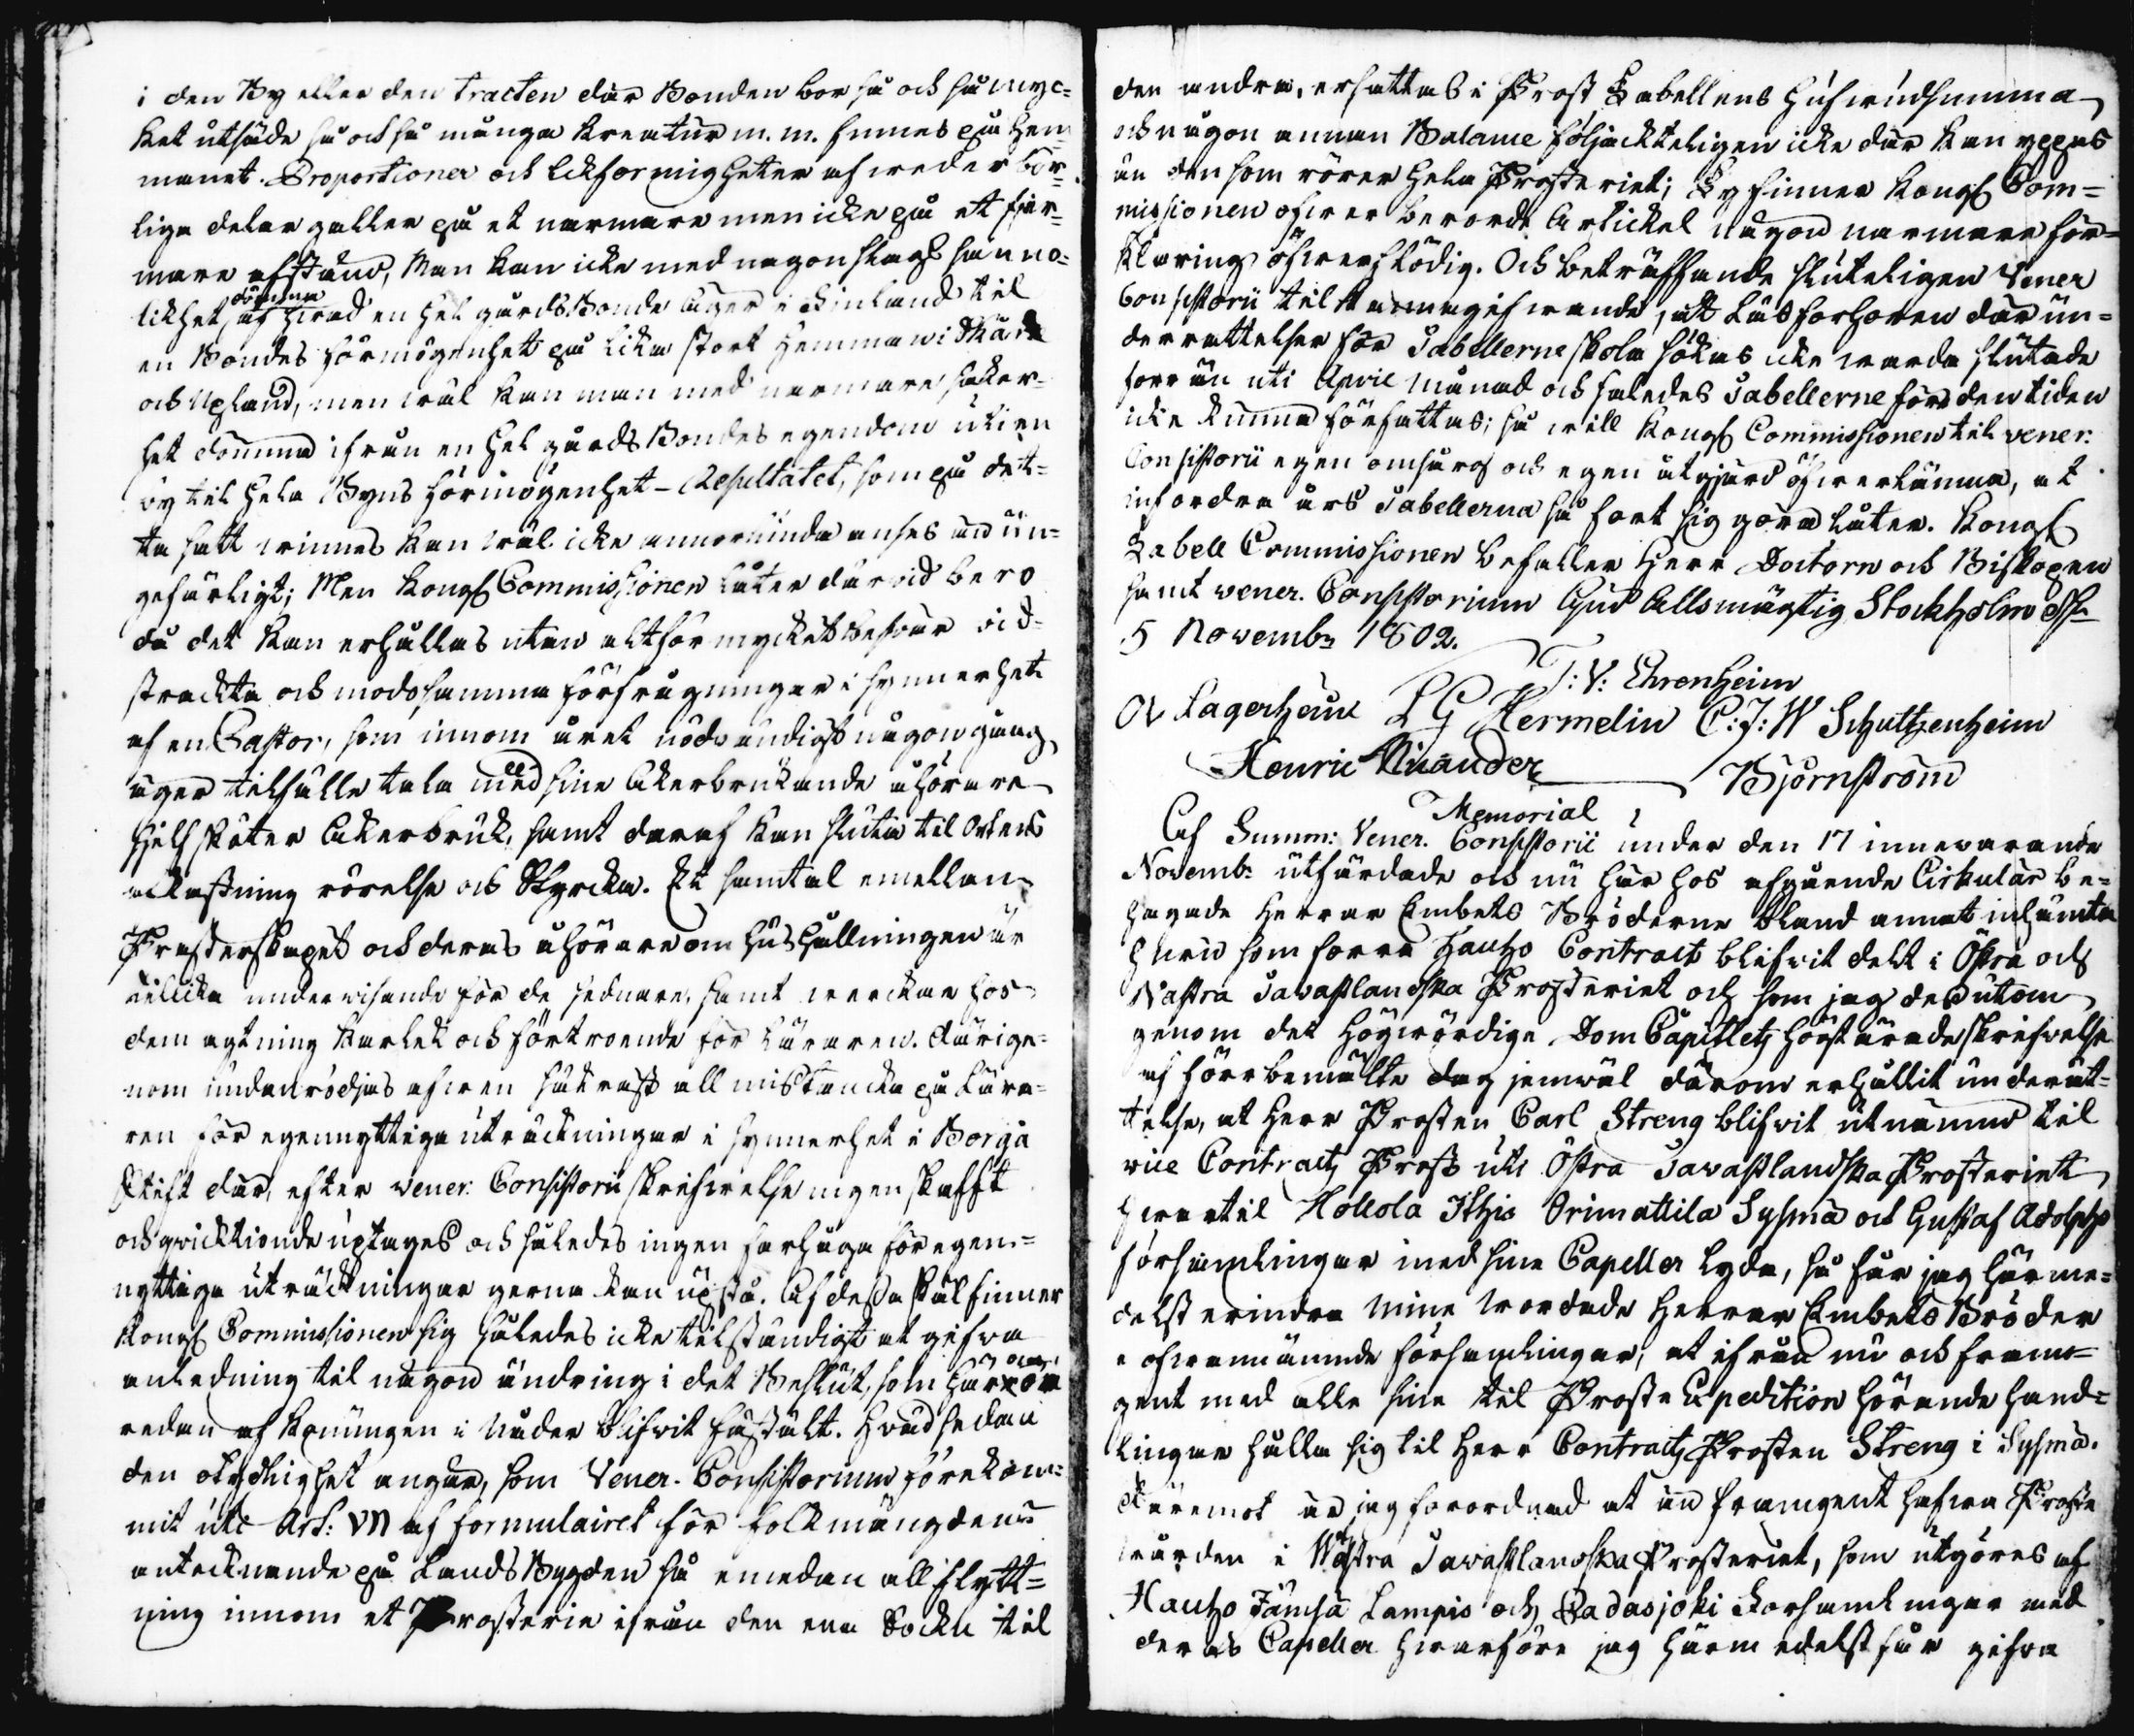 i den By eller den tracten där Bonden bor så och så myc=
ket utsäde så och så många Kreatur m. m. finnes på hem=
manet. Proportioner och likformigheter af weder bör=
liga delar galler på et narmare men icke på et fjer=
mare afstånd, Man kan icke med någon slags sanno=
likhet dömma af hwad en hel gårds Bonde äger i Finland til
en Bondes förmögenhet på lika stort Hemman i Skåne
och Upland, men wäl kan man med narmare saker=
het dömma ifrån en hel gårds Bondes egendom uti en
by til hela Byns förmögenhet – Resultatet, som på det=
ta satt winnes kan wäl icke annorlunda anses än un=
gefärligt; Men Kongl Commissionen låter därvid bero
då det kan erhållas utan altför mycket beswär vid=
strackta och modosamma förfrågningar i synnerhet
af en Pastor, som innom året nödvändigt någon gång
äger tilfälle tala med sine åkerbrukande åhörare
sjelf skåter Åkerbruk, samt deraf kan sluta til Ortens
afkastning rörelse och Styrcka. Et samtal emellan
Prästerskapet och deras åhörare om hushållningen är
tillika underwisande för de sednare, samt werckar hos
dem agtning karlek och förtroende för Läraren. Därige=
nom undanrödjas afwen såkrast all misstancka på Lära=
ren för egennyttiga uträckningar i synnerhet i Borgå
Stift där, efter vener: Consistorii skrifwelse ingen skafft
och qvicktionde uptages och således ingen farhåga för egen=
nyttiga uträckningar gerna kan upstå. Af dessa skäl finner
Kongl Commissionen sig således icke tilståndigt at gifwa
anledning til någon ändring i det Beslut, som härom
redan af Konungen i Nåder blifvit faststält. Hvad sedan
den otydlighet angår, som Vener. Consistorium förekom=
mit uti Art: VII af formulairet för folkmängdens
antecknande på Lands Bygden så emedan all flytt=
ning innom et Prosterie ifrån den ena Sockn til
den andra, ersattas i Prost Tabellens Hufwudsumma
och någon annan Balance följackteligen icke där kan yppas
än den som rörer hela Prosteriet; Ty finner Kongl Com=
missionen ofwer berorde Artickel någon narmare för=
klaring öfwerflödig. Och beträffande sluteligen Vener
Consistorii tilkannagifwande, at Läsforhoren där un=
derrattelser för Tabellerne skola sökas icke warda slutade
forr än uti April månad och saledes Tabellerne före den tiden
icke kunna författas; så will Kongl Commissionen til vener:
Consistorii egen omsorg och egen åtgjärd öfwerlämna, at
infordra års Tabellerna så fort sig gora låter. Kongl
Tabell Commissionen befaller Herr Doctorn och Biskopen
samt vener. Consistorium Gud Allsmägtig Stockholm d
5 Novembr 1802.
F: V: Ehrenheim
Ol Lagerheim S G Hermelin C: J: W Schultzenheim
Henric Nicander
Björnström
Memorial
Af Summ: Vener. Consistorii under den 17 innewarande
Novemb: utfärdade och nu här hos afgående Cirkulär be=
hagade Herrar Embets Bröderne bland annat inhämta
huru som forra Hauho Contract blifvit delt i Östra och
Wastra Tavastlandska Prosteriet och som jag desutom
genom det Högwördige Dom Capitlets högstärade skrifvelse
af förrbemälte dag jemwäl därom erhållit underrat=
telse, at Herr Prosten Carl Streng blifvit utnämnd til
vice Contracts Prost uti Östra Tavastlandska Prosteriet
hwartil Hollola Ithis Orimattila Sysmä och Gustaf Adolphs
församlingar med sine Capeller lyda, så får jag härme=
delst erindra Mine Wordade Herrar Embets Bröder
i ofwannämnde församlingar, at ifrån nu och fram=
gent med alle sine til Prosts Expedition hörande hand=
lingar hålla sig til Herr Contracts Prosten Streng i Sysmä.
Däremot är jag forordnad at än framgent hafwa Prosts
wården i Wästra Tavastlandska Prosteriet, som utgöres af
Hauho Jämsä Lampis och Padasjoki Forsamlingar med
deras Capeller hwarföre jag härmedelst får gifva